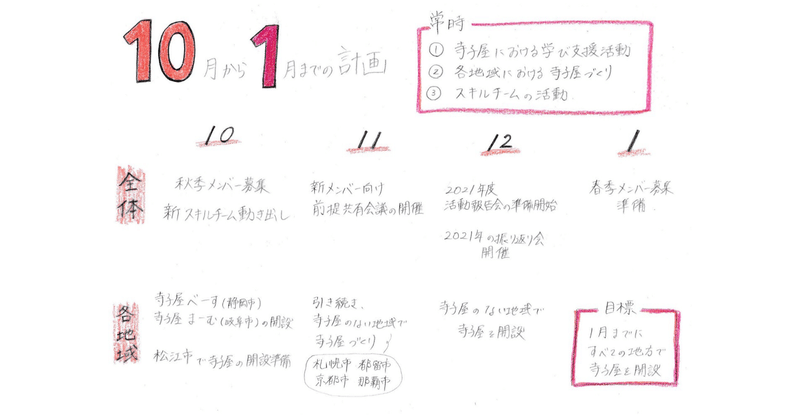 10月から1月までの計画
常時
① 寺子屋における学び支援活動
② 各地域における寺子屋づくり
③ スキルチームの活動
10
11
12
1
全体
秋季メンバー募集
新スキルチーム動き出し
新メンバー向け
前提共有会議の開催
2021年度
活動報告会の準備開始
2021年の振り返り会
開催
春季メンバー募集
準備
各地域
寺子屋べーす(静岡市)
寺子屋まーむ(岐阜市)の開設
松江市で寺子屋の開設準備
引き続き、
寺子屋のない地域で
寺子屋づくり
札幌市 都留市
京都市 那覇市
寺子屋のない地域で
寺子屋を開設
目標
1月までに
すべての地方で
寺子屋を開設